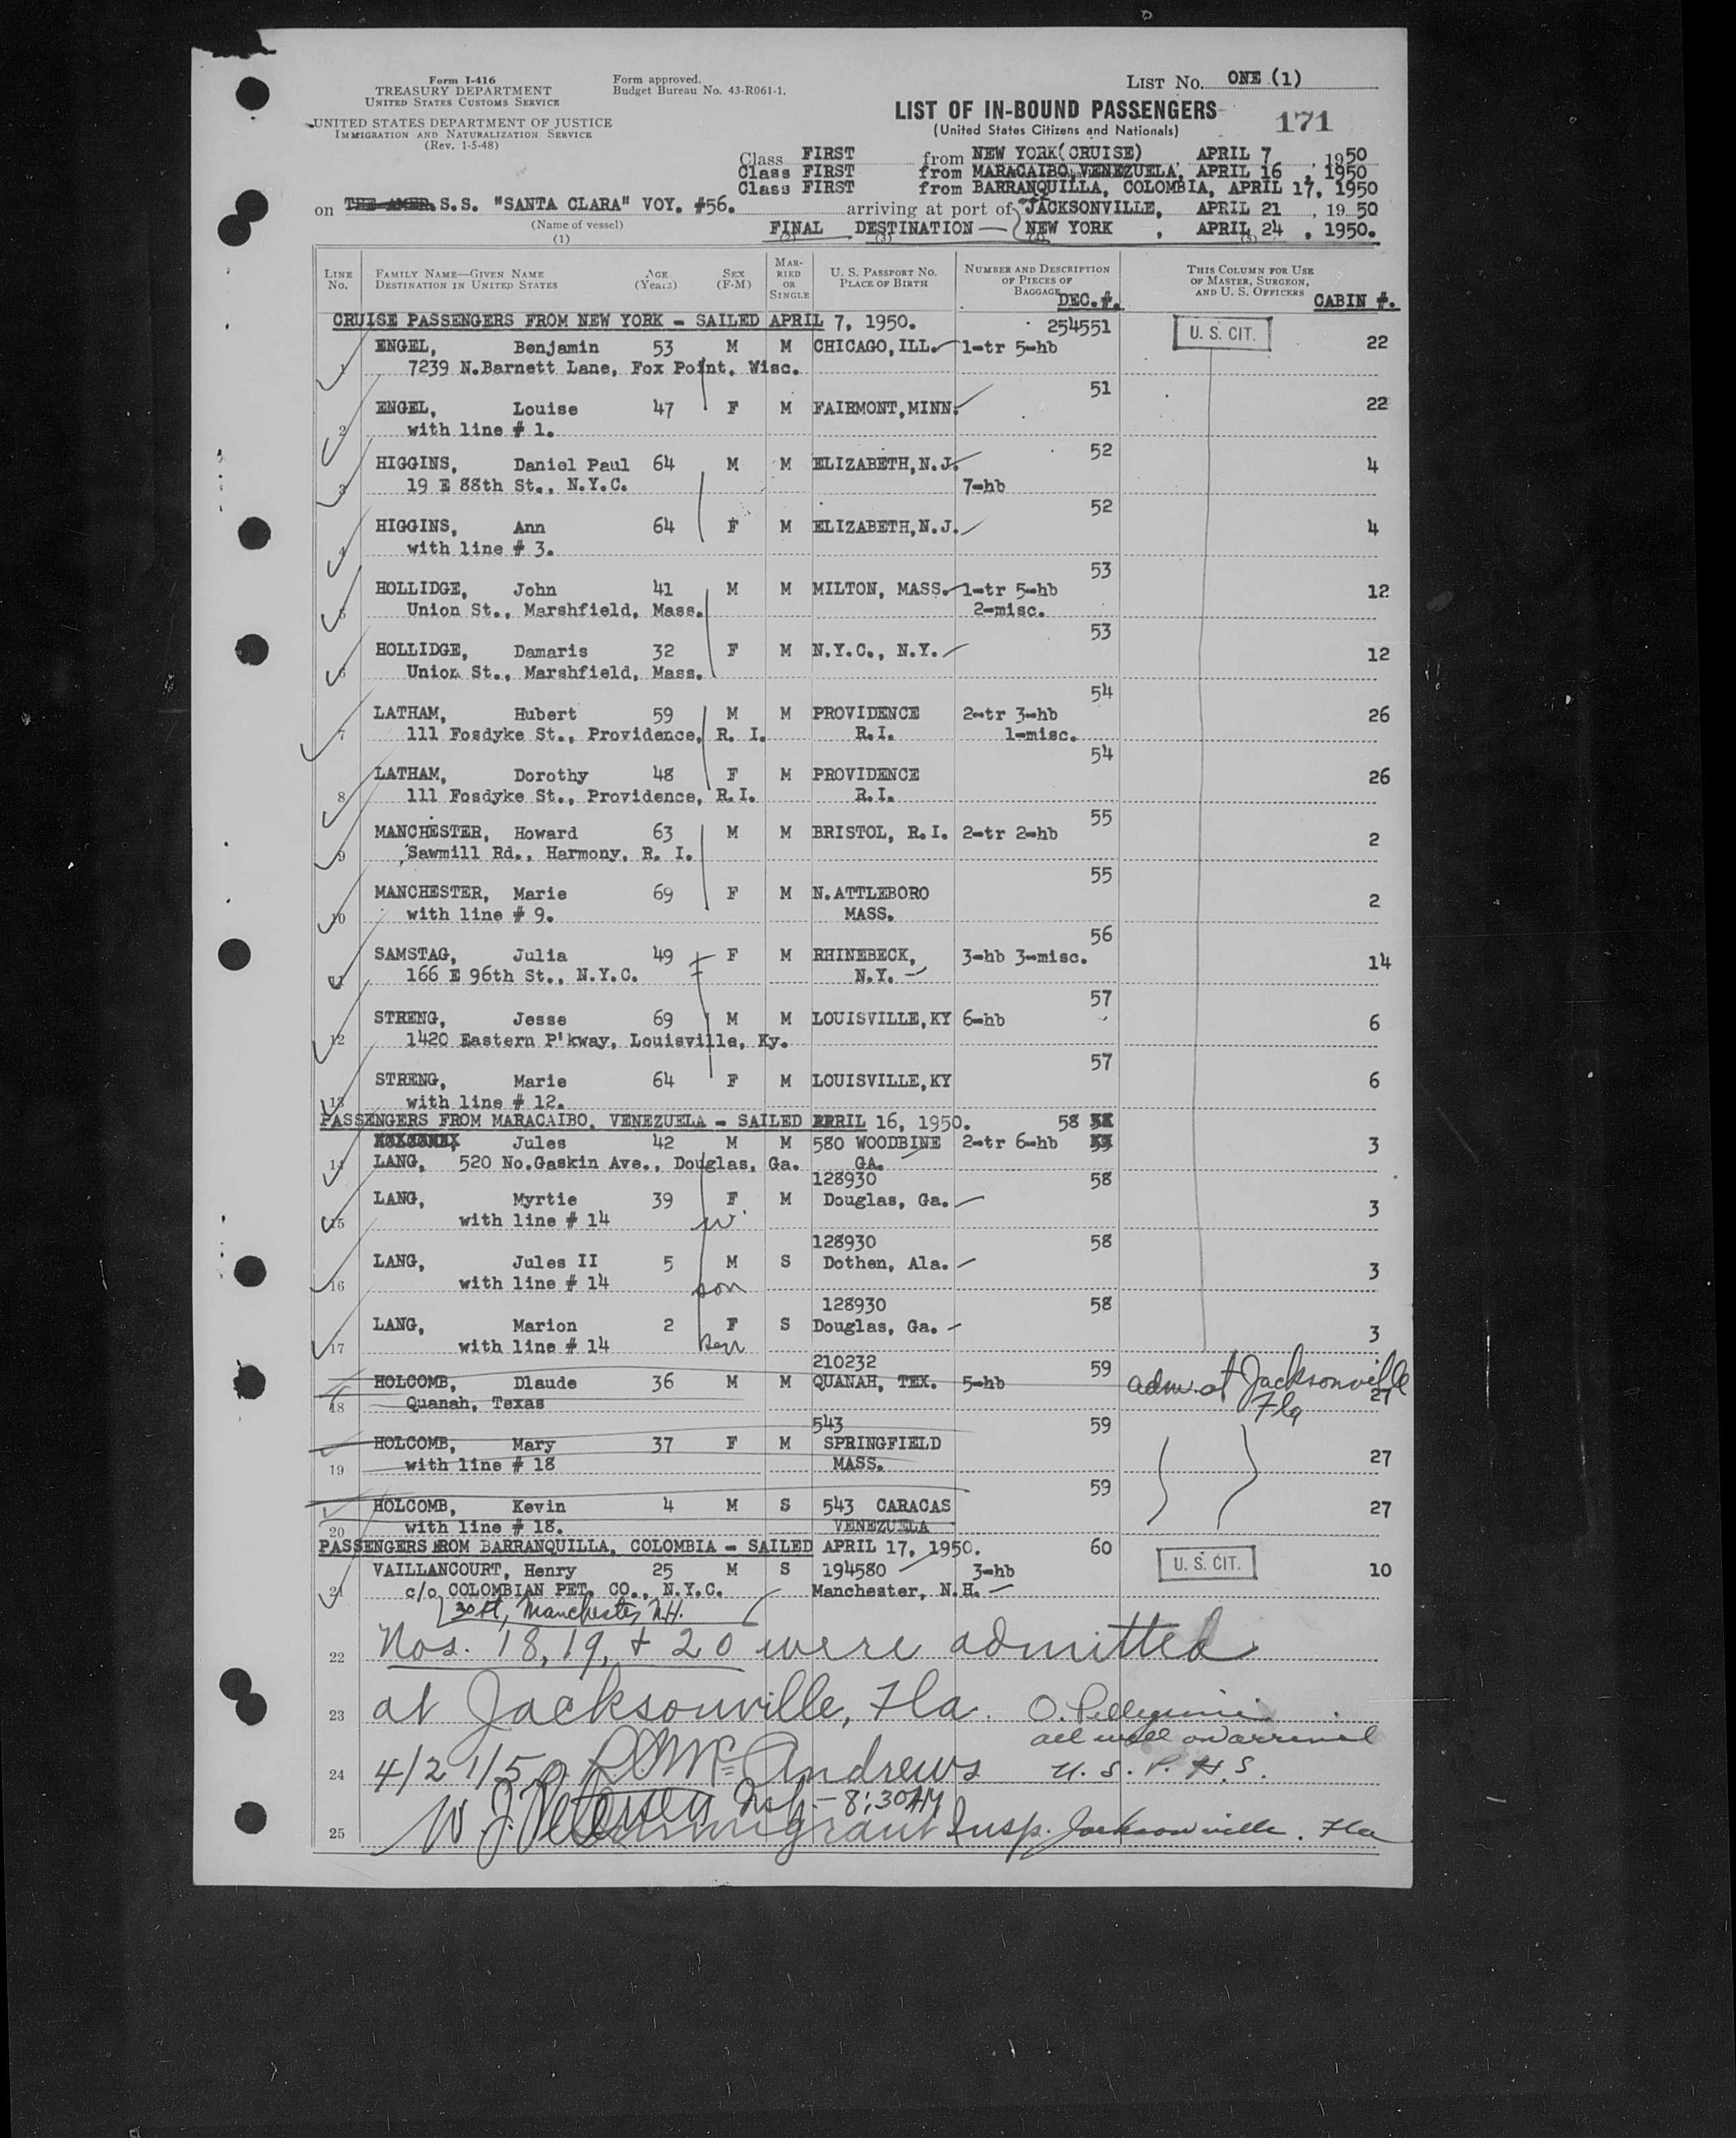 Form I-416
TREASURY DEPARTMENT
UNITED STATES CUSTOMS SERVICE
UNITED STATES DEPARTMENT OF JUSTICE
IMMIGRATION AND NATURALIZATION SERVICE
(Rev. 1-5-48)
Form approved.
Budget Bureau No. 43-R061-1.
LIST No. ONE (1)
LIST OF IN-BOUND PASSENGERS
(United States Citizens and Nationals)
171
Class FIRST from NEW YORK(CRUISE), APRIL 7, 1950
Class FIRST from MARACAIBO, VENEZUELA, APRIL 16, 1950
Class FIRST from BARRANQUILLA, COLOMBIA, APRIL 17, 1950
on THE AMER. S.S. "SANTA CLARA" VOY. #56. arriving at port of JACKSONVILLE, APRIL 21, 1950
(Name of vessel)
FINAL DESTINATION — NEW YORK, APRIL 24, 1950.
(1) (2) (3) (5)
LINE NO. FAMILY NAME—GIVEN NAME DESTINATION IN UNITED STATES AGE (Years) SEX (F-M) MARRIED OR SINGLE U. S. PASSPORT NO. PLACE OF BIRTH NUMBER AND DESCRIPTION OF PIECES OF BAGGAGE DEC.#. THIS COLUMN FOR USE OF MASTER, SURGEON, AND U. S. OFFICERS CABIN #.
CRUISE PASSENGERS FROM NEW YORK - SAILED APRIL 7, 1950. 254551 U. S. CIT.
ENGEL, Benjamin 53 M M CHICAGO, ILL. 1-tr 5-hb 22
1 7239 N.Barnett Lane, Fox Point, Wisc.
51
ENGEL, Louise 47 F M FAIRMONT, MINN. 22
2 with line # 1.
52
HIGGINS, Daniel Paul 64 M M ELIZABETH, N.J. 4
3 19 E 88th St., N.Y.C. 7-hb
52
HIGGINS, Ann 64 F M ELIZABETH, N.J. 4
4 with line # 3.
53
HOLLIDGE, John 41 M M MILTON, MASS. 1-tr 5-hb 12
5 Union St., Marshfield, Mass. 2-misc.
53
HOLLIDGE, Damaris 32 F M N.Y.C., N.Y. 12
6 Union St., Marshfield, Mass.
54
LATHAM, Hubert 59 M M PROVIDENCE 2-tr 3-hb 26
7 111 Fosdyke St., Providence, R. I. R.I. 1-misc.
54
LATHAM, Dorothy 48 F M PROVIDENCE 26
8 111 Fosdyke St., Providence, R.I. R.I.
55
MANCHESTER, Howard 63 M M BRISTOL, R.I. 2-tr 2-hb 2
9 Sawmill Rd., Harmony, R. I.
55
MANCHESTER, Marie 69 F M N.ATTLEBORO 2
10 with line # 9. MASS.
56
SAMSTAG, Julia 49 F M RHINEBECK, 3-hb 3-misc. 14
11 166 E 96th St., N.Y.C. N.Y.
57
STRENG, Jesse 69 M M LOUISVILLE, KY 6-hb 6
12 1420 Eastern P'kway, Louisville, Ky.
57
STRENG, Marie 64 F M LOUISVILLE, KY 6
13 with line # 12.
PASSENGERS FROM MARACAIBO, VENEZUELA - SAILED APRIL 16, 1950. 58
Jules 42 M M 580 WOODBINE 2-tr 6-hb 3
14 LANG, 520 No.Gaskin Ave., Douglas, Ga. GA.
128930 58
LANG, Myrtie 39 F M Douglas, Ga. 3
15 with line # 14 w
128930 58
LANG, Jules II 5 M S Dothen, Ala. 3
16 with line # 14 son
128930 58
LANG, Marion 2 F S Douglas, Ga. 3
17 with line # 14
210232 59
HOLCOMB, Dlaude 36 M M QUANAH, TEX. 5-hb adm. at Jacksonville 27
18 Quanah, Texas Fla
543 59
HOLCOMB, Mary 37 F M SPRINGFIELD 27
19 with line # 18 MASS.
59
HOLCOMB, Kevin 4 M S 543 CARACAS 27
20 with line # 18. VENEZUELA
PASSENGERS FROM BARRANQUILLA, COLOMBIA - SAILED APRIL 17, 1950. 60
VAILLANCOURT, Henry 25 M S 194580 3-hb U. S. CIT. 10
21 c/o COLOMBIAN PET. CO., N.Y.C. Manchester, N.H.
Manchester, N.H.
22 Nos. 18, 19, + 20 were admitted
23 at Jacksonville, Fla. O. Pellegrini
all well on arrival
24 4/21/50 McAndrews U. S. P. H. S.
8:30 AM
25 W. J. Immigrant Insp. Jacksonville, Fla